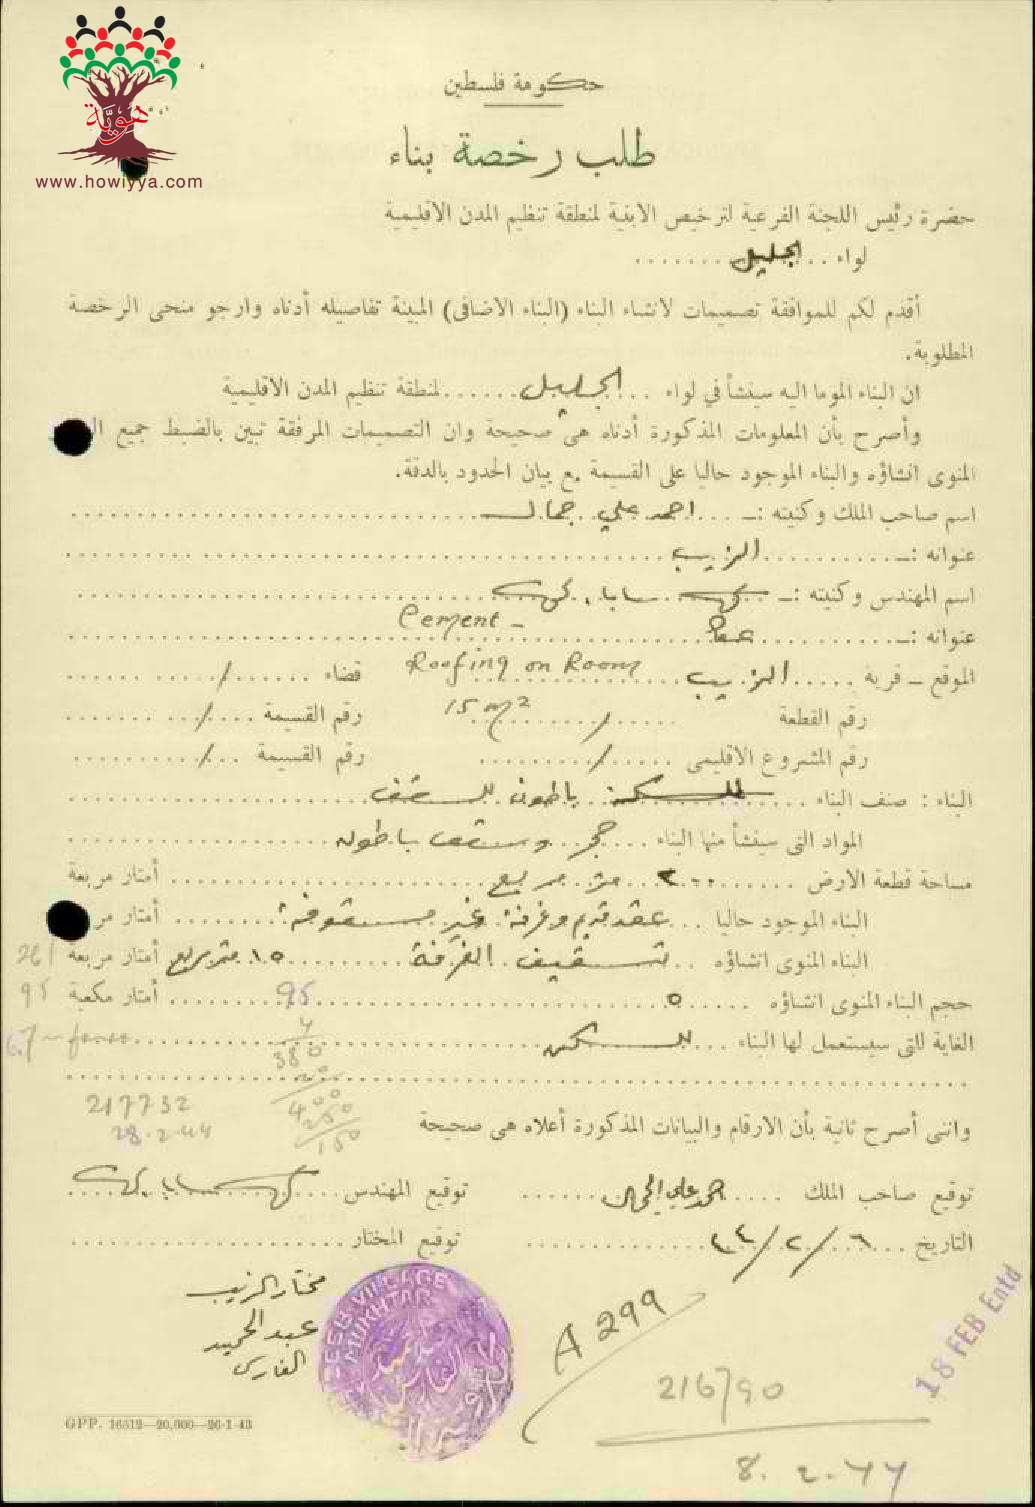 هوية
www.howiyya.com
حكومة فلسطين
طلب رخصة بناء
حضرة رئيس اللجنة الفرعية لترخيص الابنية لمنطقة تنظيم المدن الاقليمية
لواء .. الجليل ........
أقدم لكم للموافقة تصميمات لانشاء البناء (البناء الاضافى) المبينة تفاصيله أدناه وارجو منحى الرخصة
المطلوبة.
ان البناء الموما اليه سينشأ في لواء .. الجليل ...... لمنطقة تنظيم المدن الاقليمية
وأصرح بأن المعلومات المذكورة أدناه هى صحيحة وان التصميمات المرفقة تبين بالضبط جميع
المنوى انشاؤه والبناء الموجود حاليا على القسيمة مع بيان الحدود بالدقة.
اسم صاحب الملك وكنيته :ـ ... احمد علي جمال
عنوانه :ـ ........... الزيب
اسم المهندس وكنيته :ـ .. سابا
Cement -
عنوانه :ـ ........... عكا
Roofing on Room
الموقع ـ قرية ..... الزيب ........ قضاء ...... /
15 m2
رقم القطعة ...... / ...... رقم القسيمة .... /
رقم المشروع الاقليمى ..... / ...... رقم القسيمة .. /
البناء : صنف البناء ........ باطون للسقف
المواد التى سينشأ منها البناء .... حجر وسقف باطون
مساحة قطعة الارض ...... ٣٠٠ متر مربع ...... أمتار مربعة
البناء الموجود حاليا ... عقد قديم وغرفة غير مسقوفة ...... أمتار
البناء المنوى انشاؤه .. تسقيف الغرفة ...... ١٥ متر مربع أمتار مربعة
حجم البناء المنوى انشاؤه ..... ٥ ...... 95 ...... أمتار مكعبة 95
الغاية للتى سيستعمل لها البناء ... للسكن
4
380
400
250
150
217732
28.2.44
واننى أصرح ثانية بأن الارقام والبيانات المذكورة أعلاه هى صحيحة
توقيع صاحب الملك .... احمد علي الجمال ...... توقيع المهندس .... سابا
التاريخ .... ٦/٢/٤٤ ...... توقيع المختار
مختار الزيب
عبد الحميد
الفارس
VILLAGE
MUKHTAR
A 299
18 FEB Entd
216790
8.2.44
GPP. 16512—20,000—26-1-43